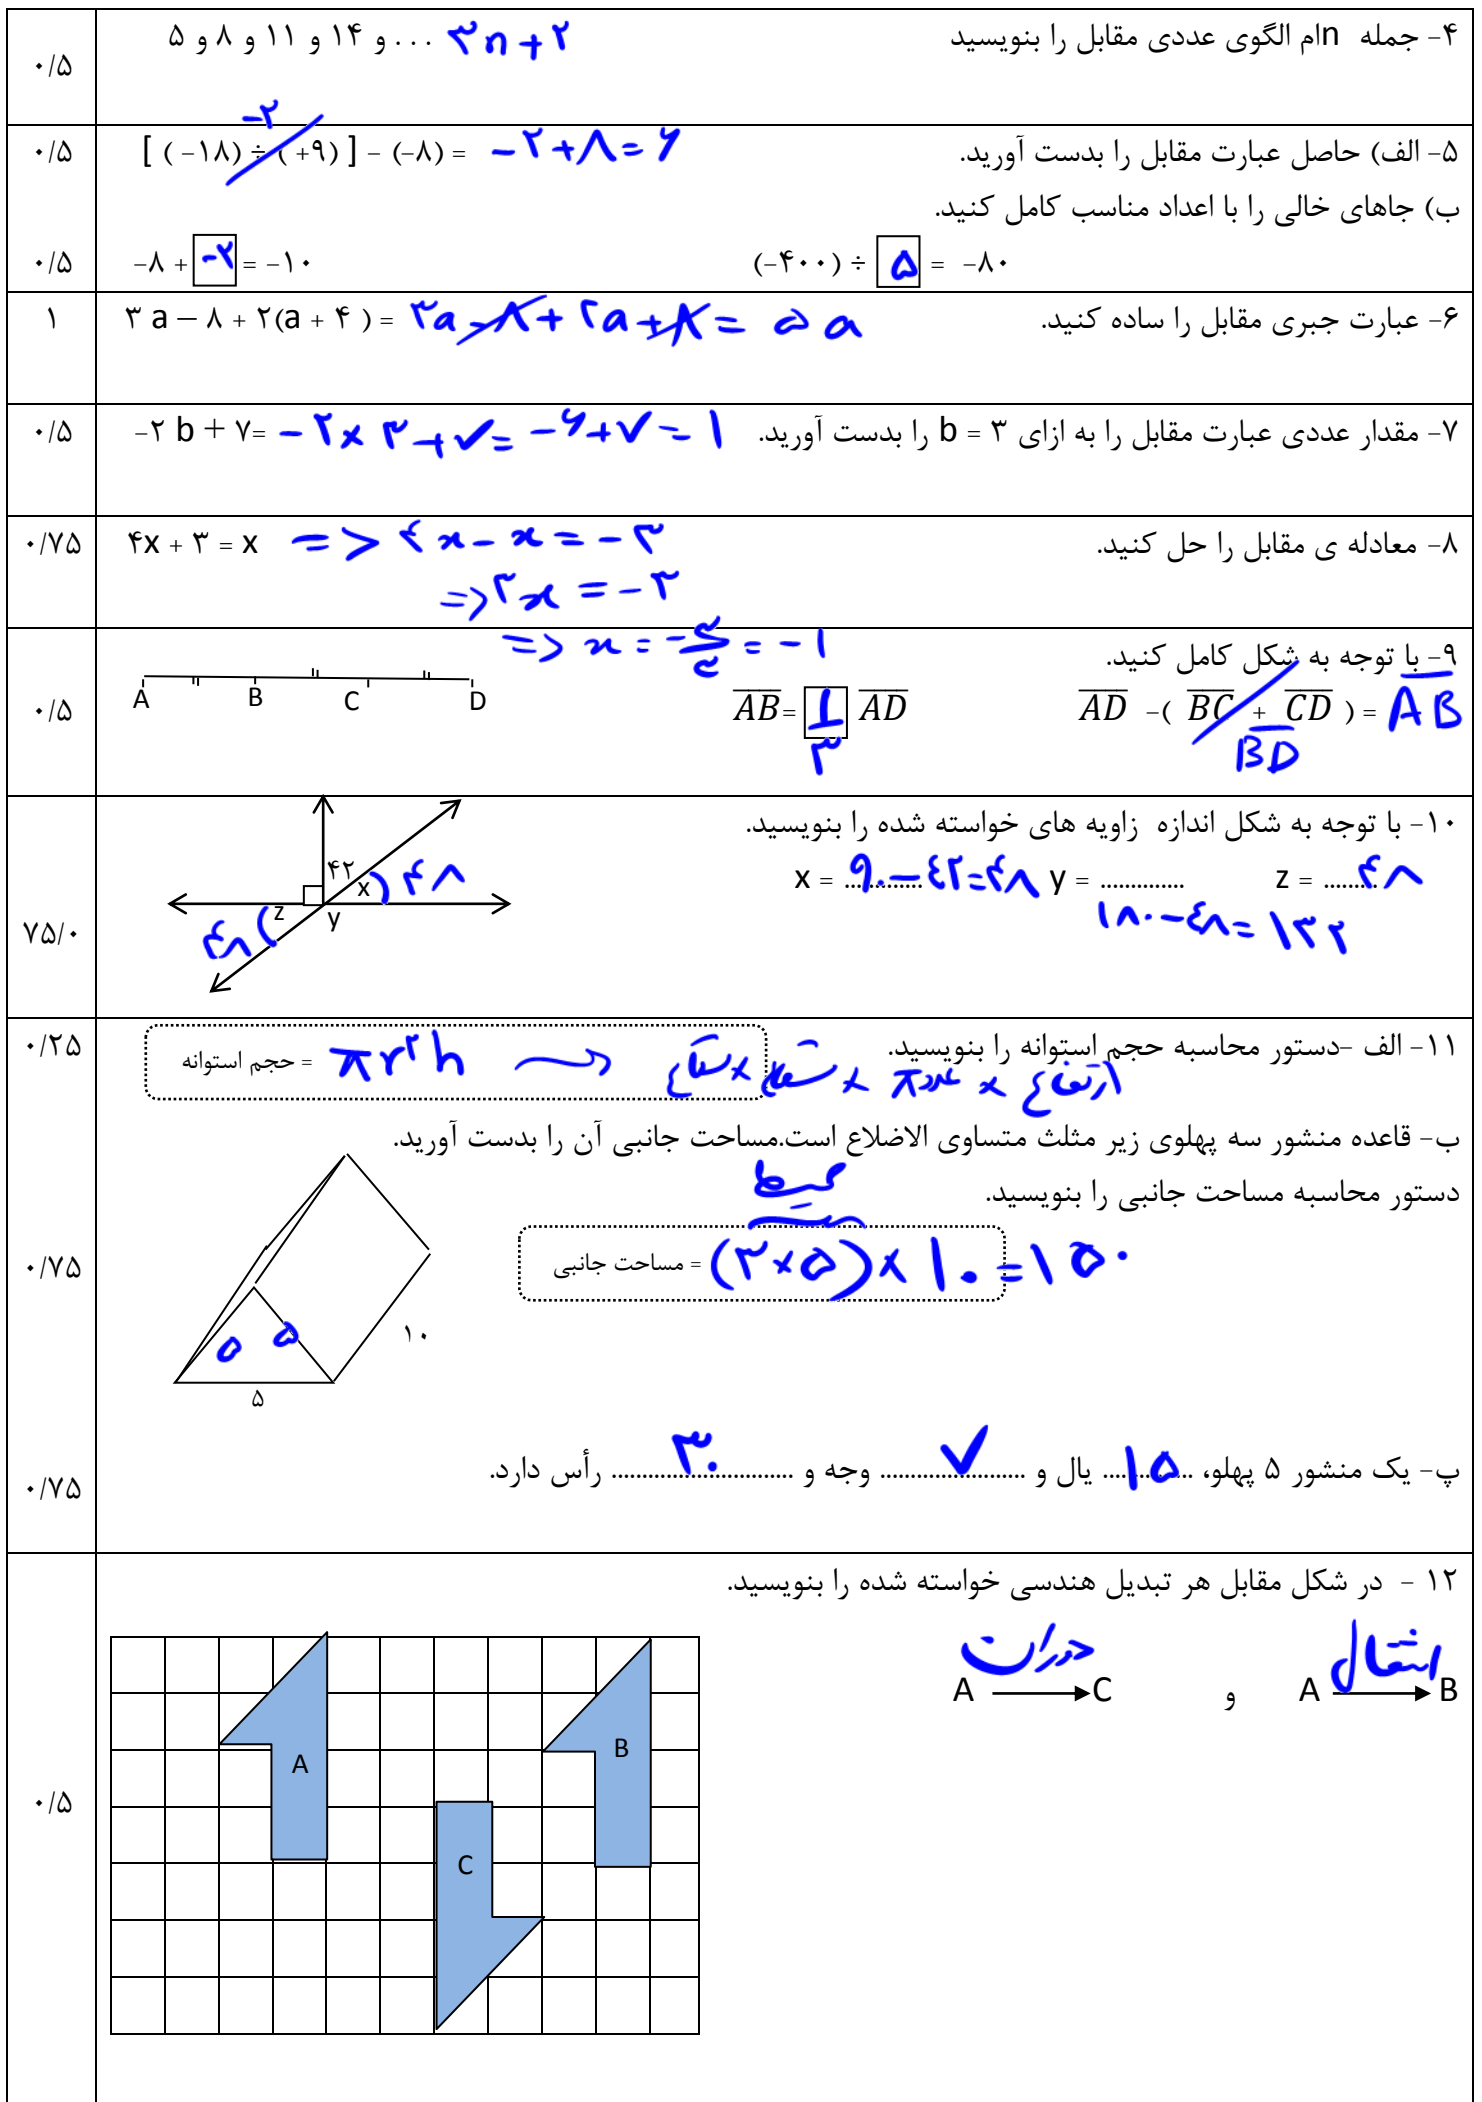 ۴- جمله nام الگوی عددی مقابل را بنویسید ۵ و ۸ و ۱۱ و ۱۴ و . . . ۳n + ۲
۰/۵
۵- الف) حاصل عبارت مقابل را بدست آورید. [ ( -۱۸) ÷ ( +۹) ] - (-۸) = -۲+۸=۶
-۲
۰/۵
ب) جاهای خالی را با اعداد مناسب کامل کنید.
(-۴۰۰) ÷ ۵ = -۸۰ -۸ + -۲ = -۱۰
۰/۵
۶- عبارت جبری مقابل را ساده کنید. ۳ a – ۸ + ۲(a + ۴ ) = ۳a - ۸ + ۲a + ۸ = ۵a
۱
۷- مقدار عددی عبارت مقابل را به ازای b = ۳ را بدست آورید. -۲ b + ۷= -۲ × ۳ + ۷ = -۶+۷ = ۱
۰/۵
۸- معادله ی مقابل را حل کنید. ۴x + ۳ = x => ۴x - x = -۳
=> ۳x = -۳
=> x = -۳/۳ = -۱
۰/۷۵
۹- با توجه به شکل کامل کنید.
AD -( BC + CD ) = AB
BD
AB= ۱/۳ AD
A B C D
۰/۵
۱۰- با توجه به شکل اندازه زاویه های خواسته شده را بنویسید.
x = ............. ۹۰-۴۲=۴۸ y = .............. z = ......... ۴۸
۱۸۰-۴۸= ۱۳۲
۴۲ x ۴۸
z y ۴۸
۷۵/۰
۱۱- الف -دستور محاسبه حجم استوانه را بنویسید.
حجم استوانه = πr²h
شعاع × شعاع × عدد π × ارتفاع
۰/۲۵
ب- قاعده منشور سه پهلوی زیر مثلث متساوی الاضلاع است.مساحت جانبی آن را بدست آورید.
دستور محاسبه مساحت جانبی را بنویسید.
محیط
مساحت جانبی = (۳×۵)× ۱۰ =۱۵۰
۵ ۵ ۱۰
۵
۰/۷۵
پ- یک منشور ۵ پهلو، .............. ۱۵ یال و ........................ ۷ وجه و .............................. ۳۰ رأس دارد.
۰/۷۵
۱۲ - در شکل مقابل هر تبدیل هندسی خواسته شده را بنویسید.
A انتقال B و A دوران C
A B C
۰/۵